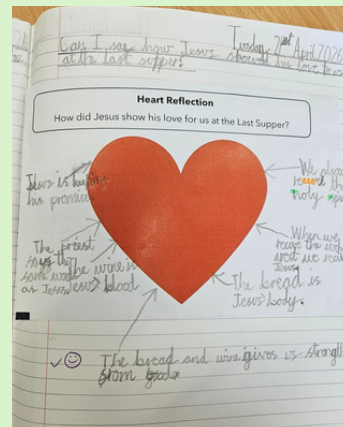 Tuesday 21st April 2026
Can I say how Jesus showed his love to us
at the last supper?
Heart Reflection
How did Jesus show his love for us at the Last Supper?
Jesus is keeping
his promise
We also
the
holy
The priest
says the
same words
as Jesus.
The wine is
Jesus' blood
When we
the
we
Jesus.
The bread is
Jesus' body.
The bread and wine gives us strength
from